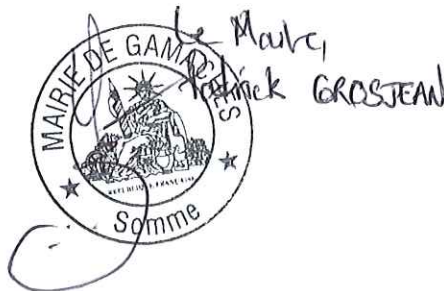 Le Maire,
Patrick GROSJEAN
MAIRIE DE GAMACHES
RÉPUBLIQUE FRANÇAISE
Somme